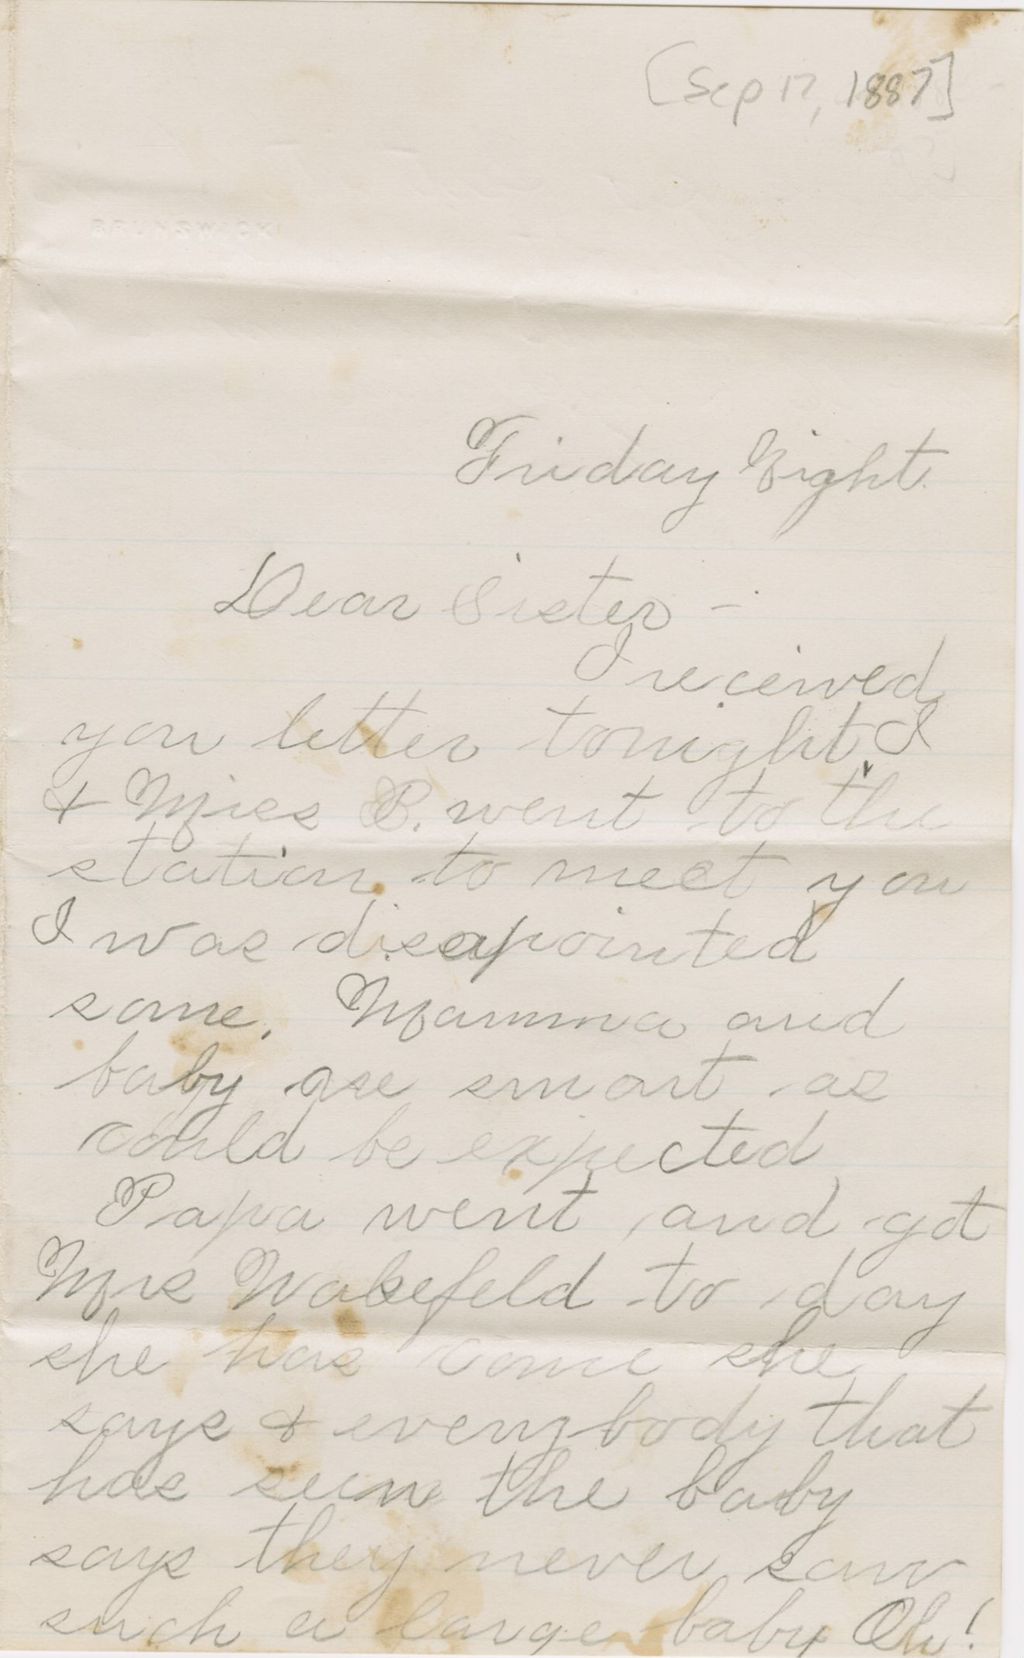 [Sep 17, 1887]
BRUNSWICK
Friday Night.
Dear Sister -
I received
you letter tonight. I
& Miss B. went to the
station to meet you
I was disapointed
some. Mamma and
baby are smart as
could be expected
Papa went and got
Mrs Wakefeld to day
she has come she
says & everybody that
has seen the baby
says they never saw
such a large baby Oh!